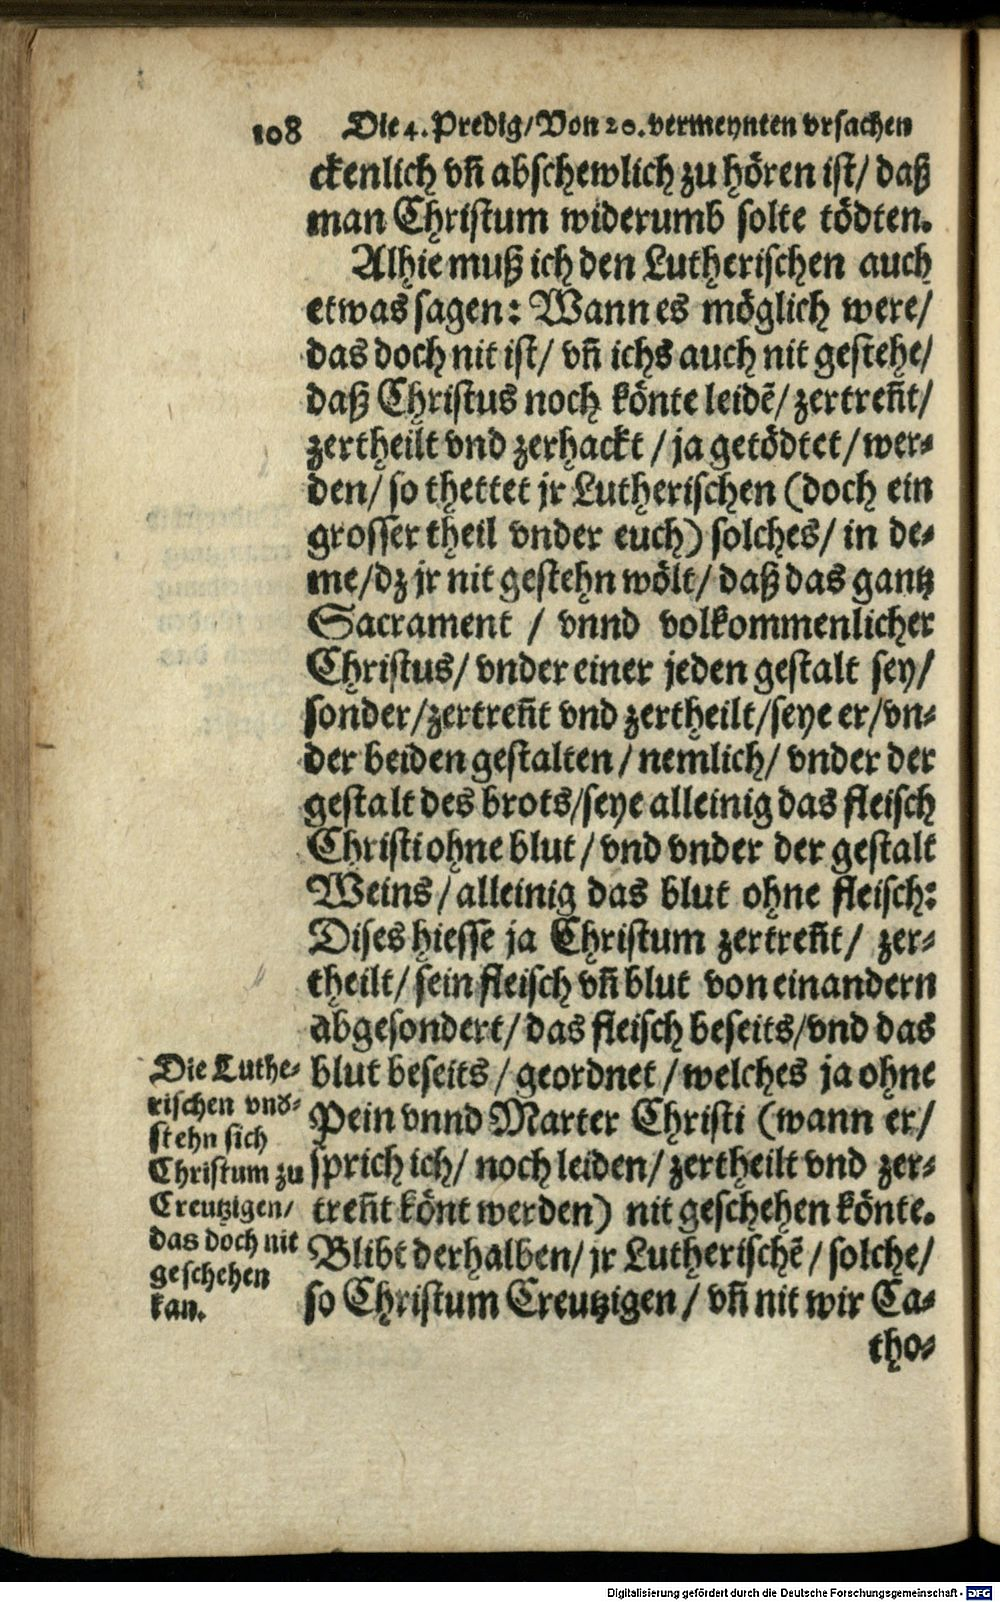 108 Die 4. Predig/Von 20. vermeynten vrsachen
ckenlich vñ abschewlich zu hören ist/ daß
man Christum widerumb solte tödten.
Alhie muß ich den Lutherischen auch
etwas sagen: Wann es möglich were/
das doch nit ist/ vñ ichs auch nit gestehe/
daß Christus noch könte leidẽ/ zertreñt/
zertheilt vnd zerhackt / ja getödtet/ wer-
den/ so thettet jr Lutherischen (doch ein
grosser theil vnder euch) solches/ in de-
me/dz jr nit gestehn wölt/ daß das gantz
Sacrament / vnnd volkommenlicher
Christus/ vnder einer jeden gestalt sey/
sonder/zertreñt vnd zertheilt/seye er/vn-
der beiden gestalten / nemlich/ vnder der
gestalt des brots/seye alleinig das fleisch
Christi ohne blut / vnd vnder der gestalt
Weins / alleinig das blut ohne fleisch:
Dises hiesse ja Christum zertreñt/ zer-
theilt/ sein fleisch vñ blut von einandern
abgesondert/ das fleisch beseits/vnd das
blut beseits / geordnet / welches ja ohne
Pein vnnd Marter Christi (wann er/
sprich ich/ noch leiden/ zertheilt vnd zer-
treñt könt werden) nit geschehen könte.
Blibt derhalben/ jr Lutherischẽ / solche/
so Christum Creutzigen / vñ nit wir Ca-
tho-
Die Luthe-
rischen vnd-
stehn sich
Christum zu
Creutzigen/
das doch nit
geschehen
kan.
Digitalisierung gefördert durch die Deutsche Forschungsgemeinschaft - DFG